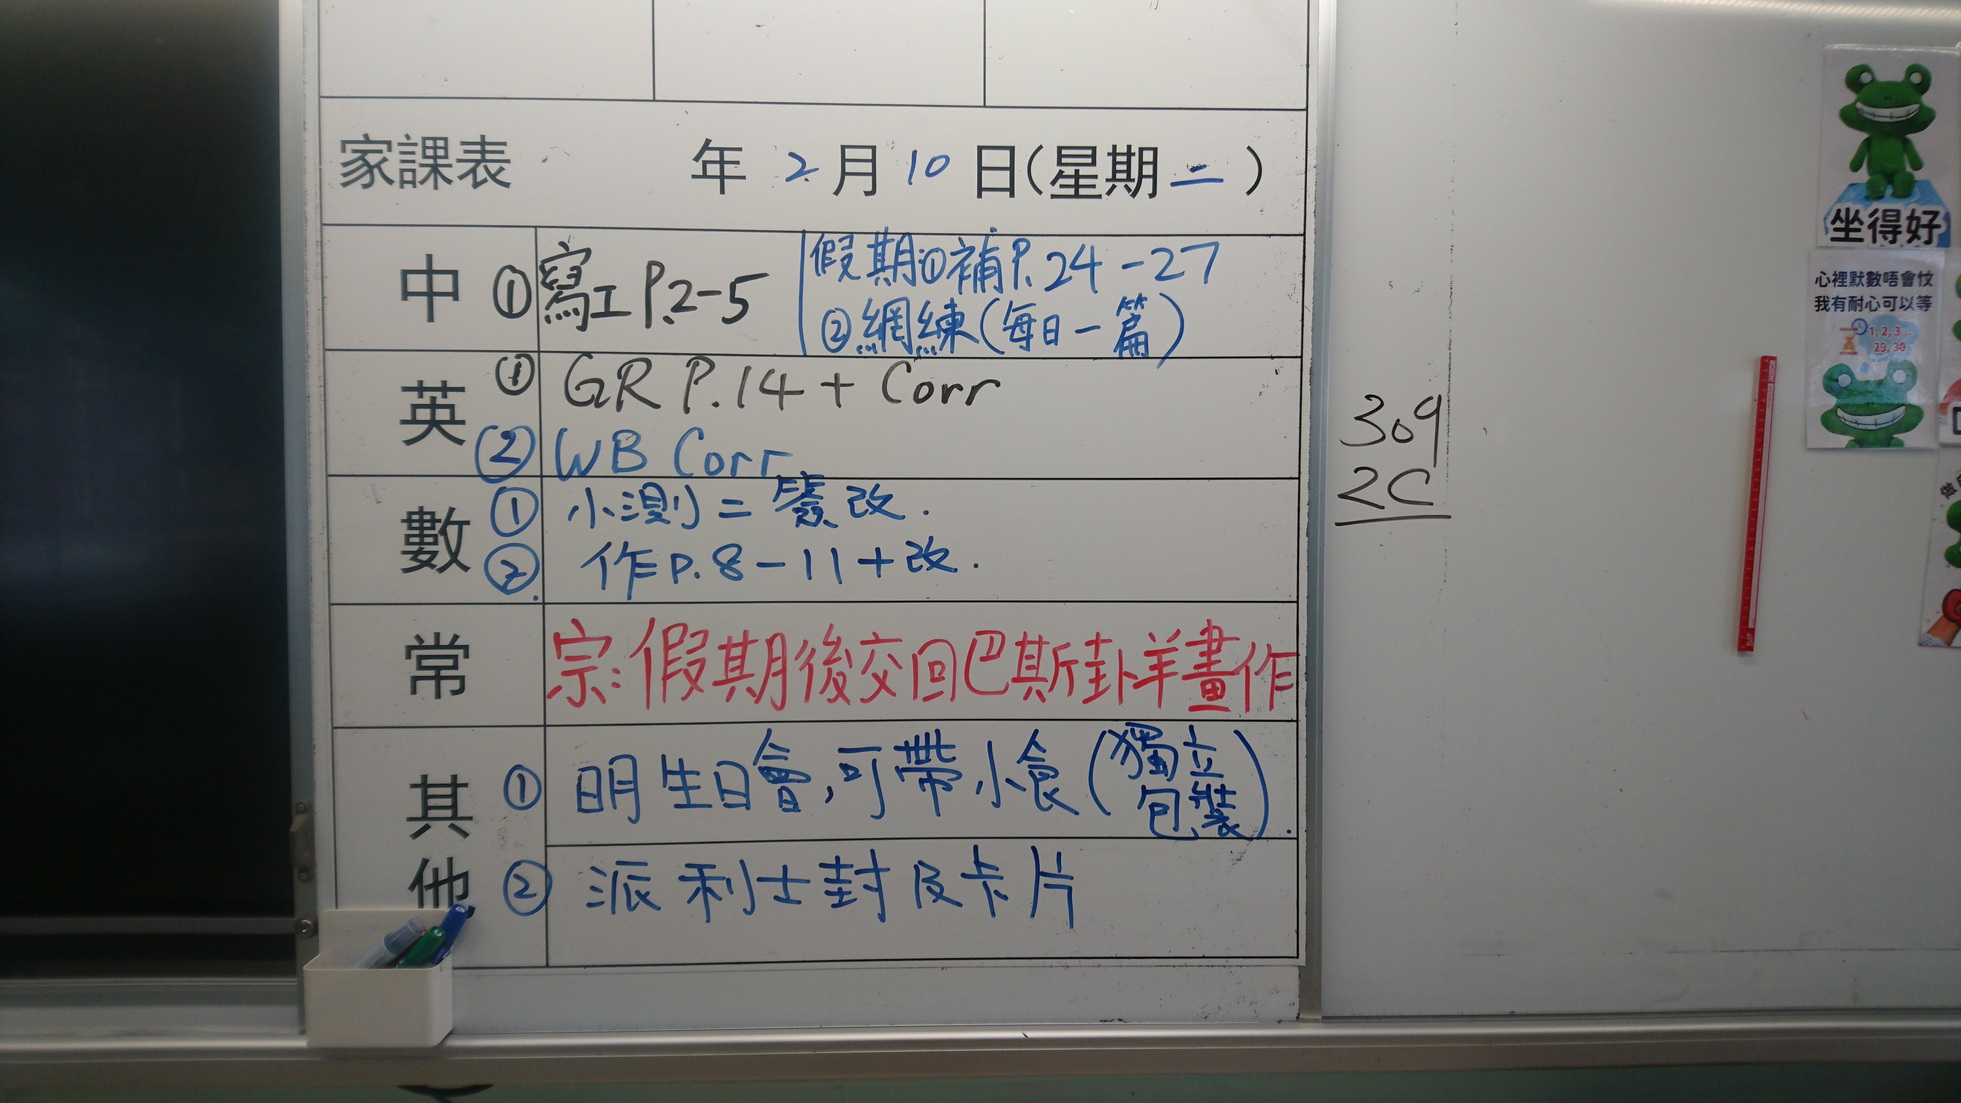 家課表 年 2 月 10 日(星期二)
中 ① 寫工 P.2-5
假期①補P.24-27
②網練(每日一篇)
英 ① GR P.14 + Corr
② WB Corr
數 ① 小測二簽改.
② 作P.8-11+改.
常 宗:假期後交回巴斯卦羊畫作
其他 ① 明生日會,可帶小食(獨立包裝).
② 派利士封及卡片
309
2C
坐得好
心裡默數唔會忟
我有耐心可以等
1, 2, 3...
29, 30